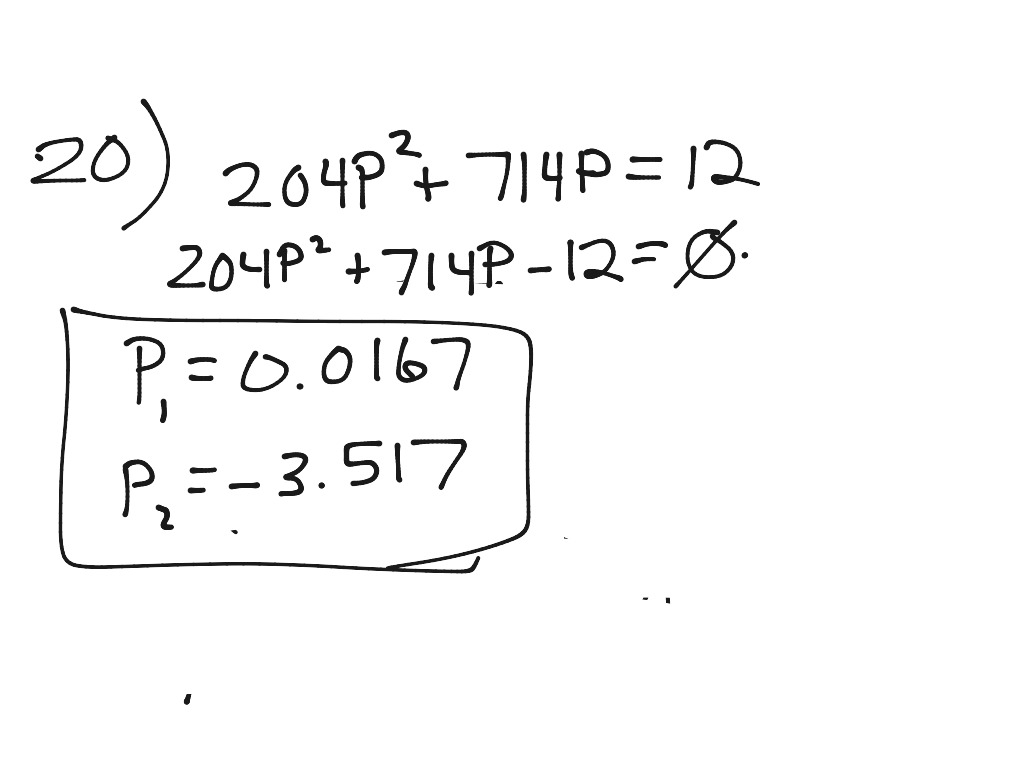 20) 204P² + 714P = 12
204P² + 714P - 12 = Ø.
P₁ = 0.0167
P₂ = - 3.517